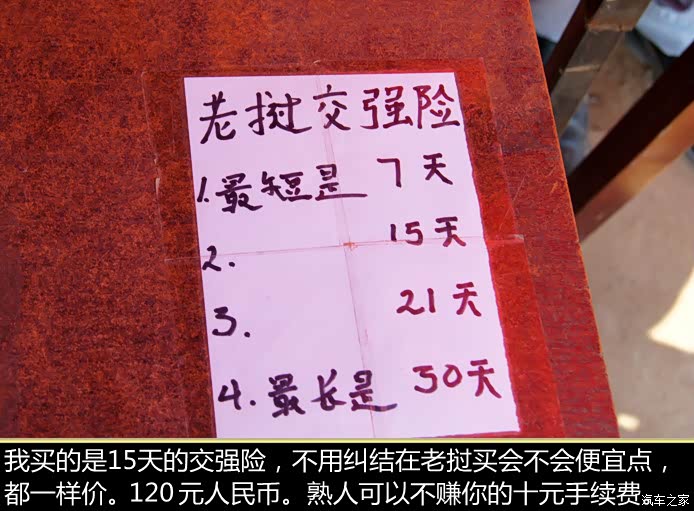 老挝交强险
1.最短是 7天
2. 15天
3. 21天
4.最长是 30天
我买的是15天的交强险，不用纠结在老挝买会不会便宜点，
都一样价。120元人民币。熟人可以不赚你的十元手续费。
汽车之家